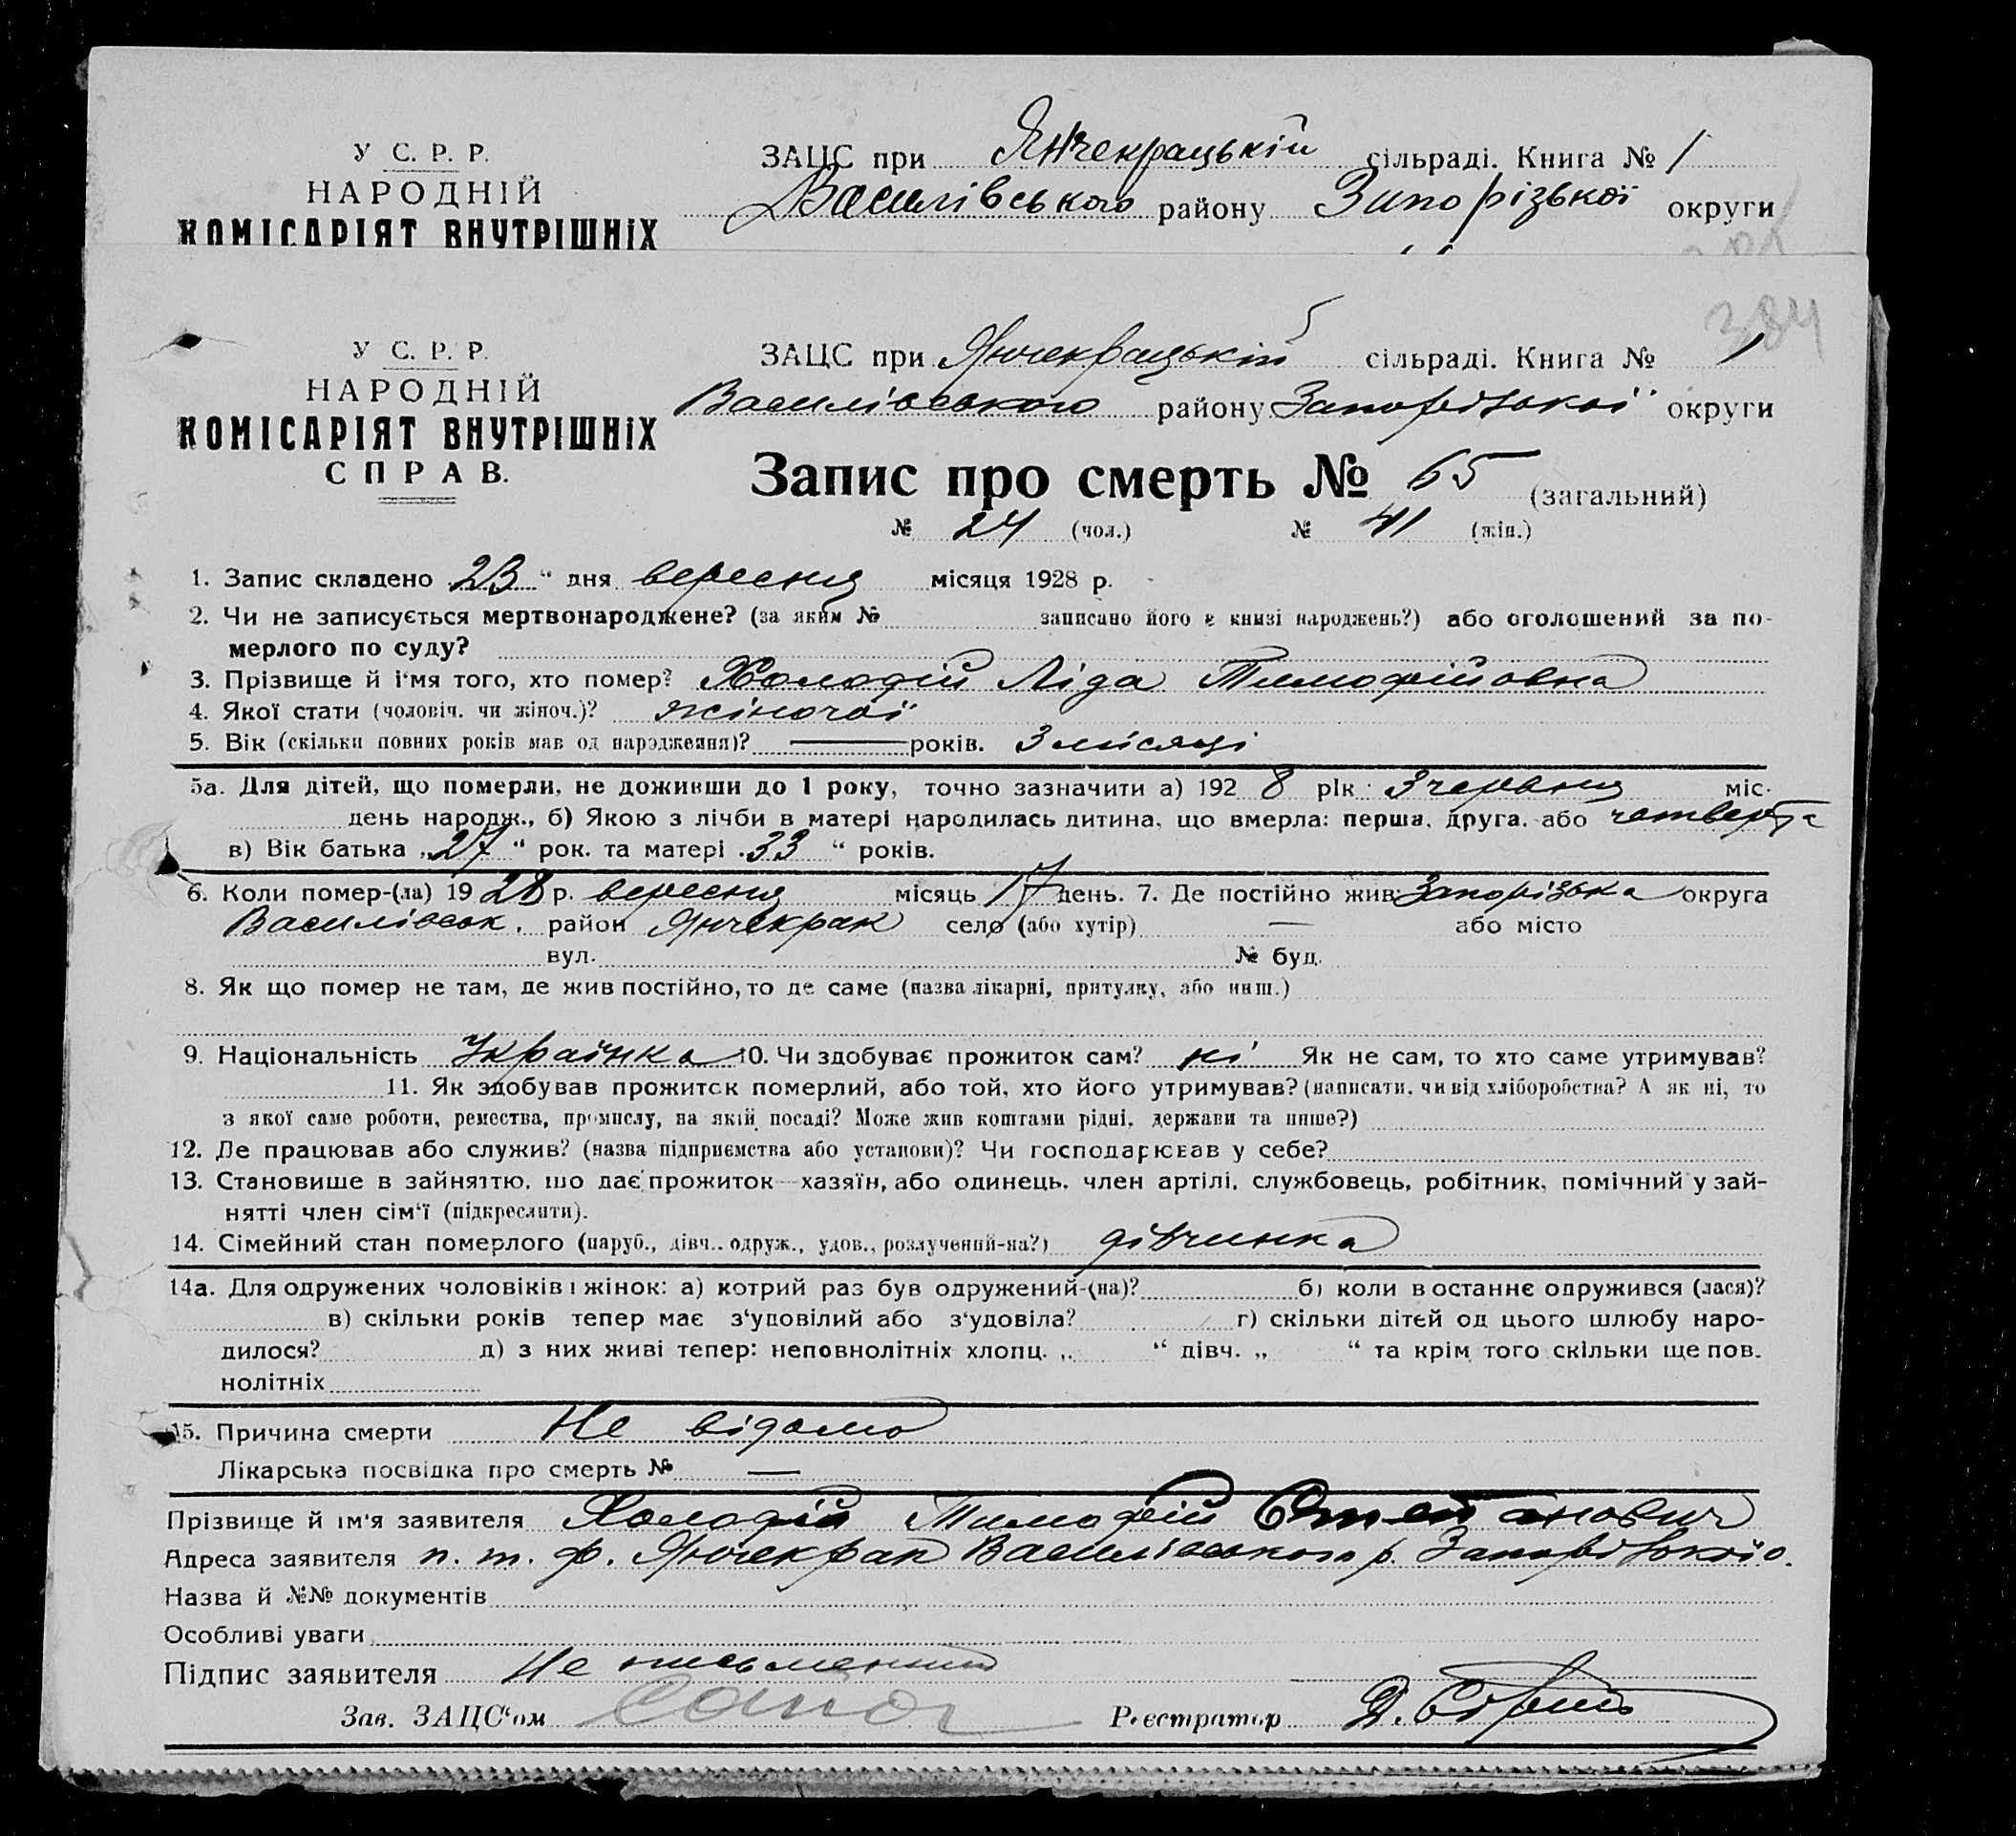 У С. Р. Р. ЗАЦС при Янчекрацькій сільраді. Книга № 1
НАРОДНІЙ Василівського району Запорізької округи
КОМІСАРІЯТ ВНУТРІШНІХ
384
У С. Р. Р. ЗАЦС при Янчекрацькій сільраді. Книга № 1
НАРОДНІЙ Василівського району Запорізької округи
КОМІСАРІЯТ ВНУТРІШНІХ
СПРАВ. Запис про смерть № 65 (загальний)
№ 24 (чол.) № 41 (жін.)
1. Запис складено 23 " дня вересня місяця 1928 р.
2. Чи не записується мертвонароджене? (за яким № записано його в книзі народжень?) або оголошений за по-
мерлого по суду?
3. Прізвище й і'мя того, хто помер? Холодій Ліда Тимофійовна
4. Якої стати (чоловіч. чи жіноч.)? жіночої
5. Вік (скільки повних років мав од народження)? — років. 3 місяці
5а. Для дітей, що померли, не доживши до 1 року, точно зазначити а) 192 8 рік 3 червня міс.
день народж., б) Якою з лічби в матері народилась дитина, що вмерла: перша, друга, або четверта
в) Вік батька „27" рок. та матері „33" років.
6. Коли помер-(ла) 19 28 р. вересня місяць 17 день. 7. Де постійно жив Запорізька округа
Василівськ. район Янчекрак село (або хутір) — або місто
вул. № буд.
8. Як що помер не там, де жив постійно, то де саме (назва лікарні, притулку, або инш.)
9. Національність Українка 10. Чи здобуває прожиток сам? ні Як не сам, то хто саме утримував?
11. Як здобував прожиток померлий, або той, хто його утримував? (написати, чи від хліборобства? А як ні, то
з якої саме роботи, ремества, промислу, на якій посаді? Може жив коштами рідні, держави та инше?)
12. Де працював або служив? (назва підприємства або установи)? Чи господарював у себе?
13. Становище в зайняттю, що дає прожиток—хазяїн, або одинець, член артілі, службовець, робітник, помічний у зай-
нятті член сім'ї (підкреслити).
14. Сімейний стан померлого (паруб., дівч., одруж., удов., розлучений-на?) дівчинка
14а. Для одружених чоловіків і жінок: а) котрий раз був одружений-(на)? б) коли востаннє одружився (лася)?
в) скільки років тепер має з'удовілий або з'удовіла? г) скільки дітей од цього шлюбу наро-
дилося? д) з них живі тепер: неповнолітніх хлопц. „ " дівч. „ " та крім того скільки ще пов.
нолітніх
15. Причина смерти Не відомо
Лікарська посвідка про смерть № —
Прізвище й ім'я заявителя Холодій Тимофій Степанович
Адреса заявителя п. т. ф. Янчекрак Василівського р. Запорізької о.
Назва й №№ документів
Особливі уваги
Підпис заявителя Не письменний
Зав. ЗАЦС'ом Реєстратор